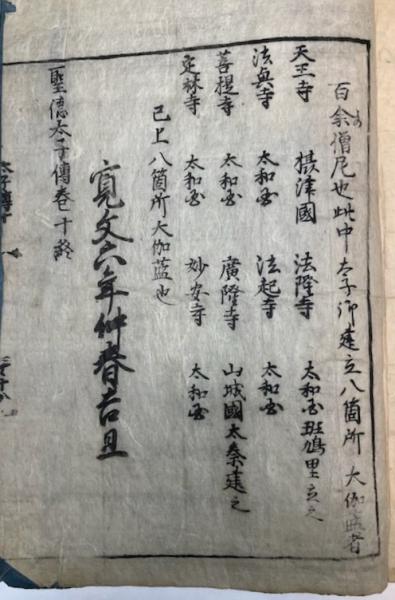 百余僧尼也此中太子御建立八箇所大伽藍者
天王寺 摂津國 法隆寺 太和国斑鳩里立之
法興寺 太和国 法起寺 太和国
菩提寺 太和国 廣隆寺 山城國太秦建之
定林寺 太和国 妙安寺 太和国
已上八箇所大伽藍也
寛文六年仲春吉旦
聖德太子傳卷十終